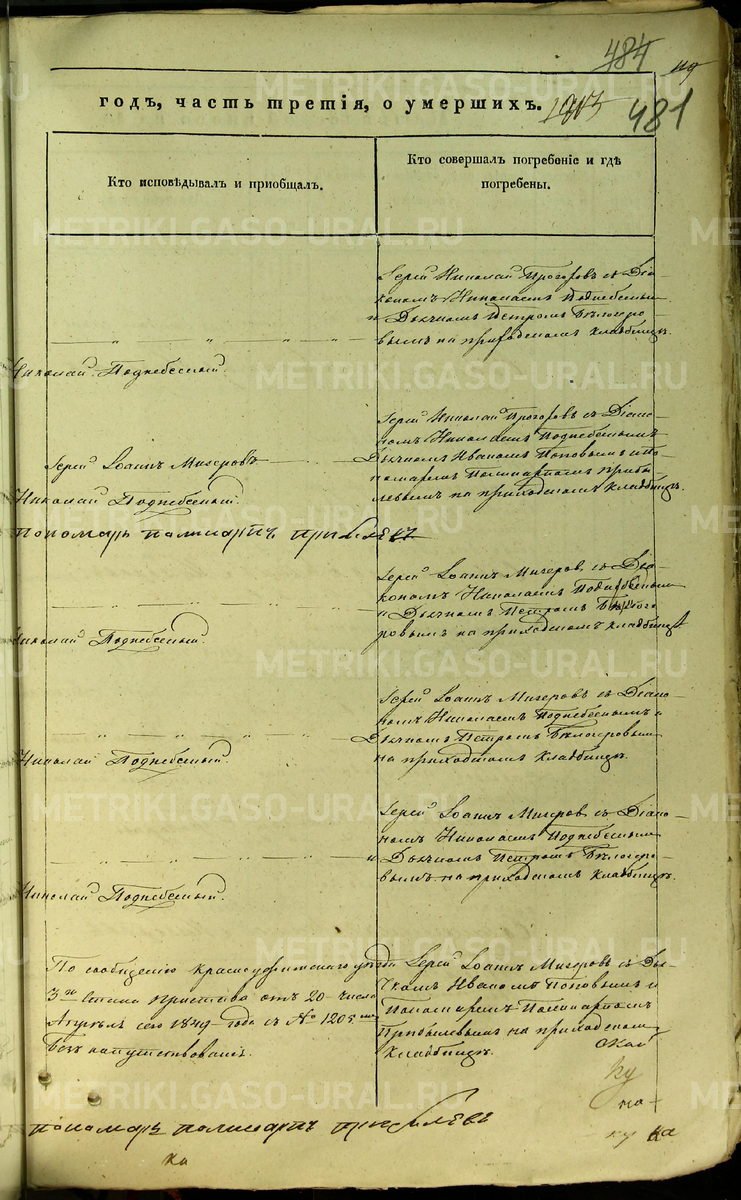 484
119
годъ, часть третія, о умершихъ. 1903
481
Кто исповѣдывалъ и приобщалъ.
Кто совершалъ погребеніе и гдѣ
погребены.
Іерей Николай Прозоровъ съ Діа-
кономъ Николаемъ Поднебеснымъ
и Дьячкомъ Петромъ Бѣлозеро-
вымъ на приходскомъ кладбищѣ.
Николай Поднебесный.
Іерей Николай Прозоровъ съ Діако-
номъ Николаемъ Поднебеснымъ
Іерей Іоаннъ Мизеровъ
Дьячкомъ Иваномъ Поповымъ и По-
номаремъ Поликарпомъ Прибы-
левымъ на приходскомъ кладбищѣ.
Николай Поднебесный.
пономарь поликарпъ прибылевъ
Іерей Іоаннъ Мизеровъ съ Діа-
кономъ Николаемъ Поднебеснымъ
и Дьячкомъ Петромъ Бѣлозе-
ровымъ на приходскомъ кладбищѣ
Николай Поднебесный.
Іерей Іоаннъ Мизеровъ съ Діако-
номъ Николаемъ Поднебеснымъ и
Дьячкомъ Петромъ Бѣлозеровымъ
на приходскомъ кладбищѣ.
Николай Поднебесный.
Іерей Іоаннъ Мизеровъ съ Діако-
номъ Николаемъ Поднебеснымъ
и Дьячкомъ Петромъ Бѣлозеро-
вымъ на приходскомъ кладбищѣ.
Николай Поднебесный.
По сообщенію Красноуфимскаго уѣзда
3го Стана Пристава отъ 20 числа
Апрѣля сего 1849 года съ № 1205
безъ напутствованія.
Іерей Іоаннъ Мизеровъ съ Дья-
чкомъ Иваномъ Поповымъ и
Пономаремъ Поликарпомъ
Прибылевымъ на приходскомъ
кладбищѣ.
пономарь поликарпъ прибылевъ
ку
на
ку ка
ка
METRIKI.GASO-URAL.RU